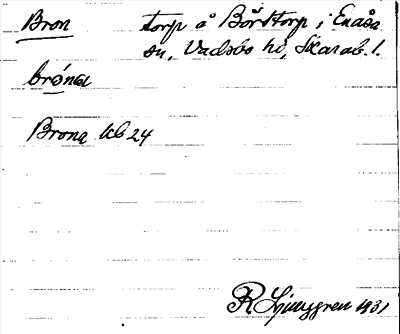 Bron torp å Börstorp i Enåsa
sn, Vadsbo hd, Skarab. l.
brónα
Brona kb 24
R Ljunggren 1931